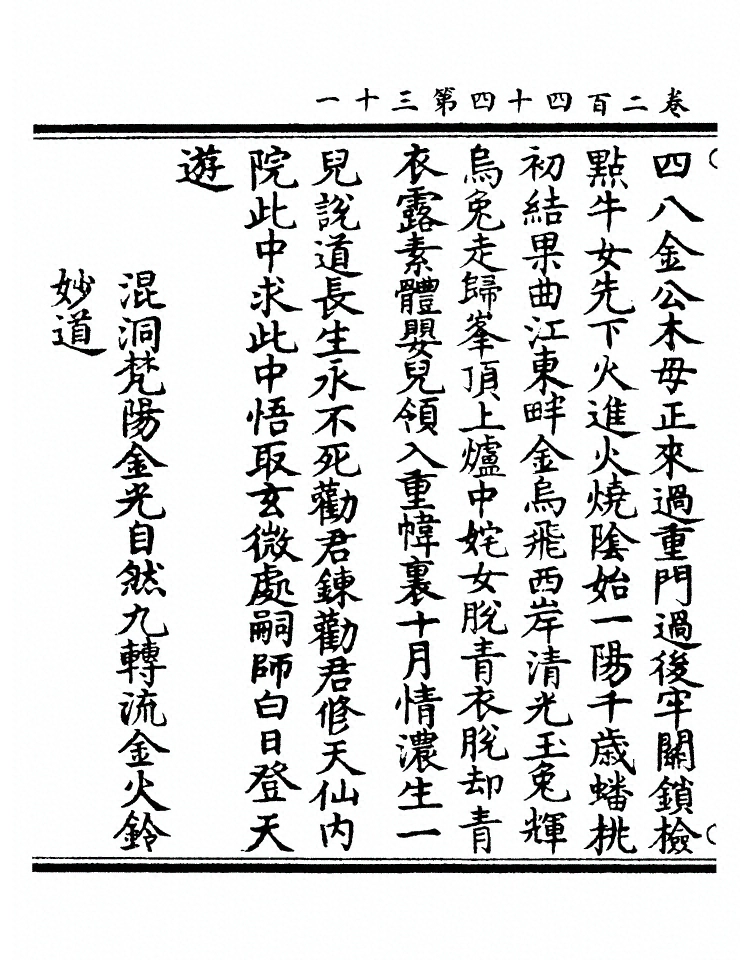 卷二百四十四第三十一
四八金公木母正來過重門過後牢關鎖檢
點牛女先下火進火燒陰始一陽千歲蟠桃
初結果曲江東畔金烏飛西岸清光玉兔輝
烏兔走歸峯頂上爐中姹女脫青衣脫却青
衣露素體嬰兒領入重幃裏十月情濃生一
兒說道長生永不死勸君鍊勸君修天仙內
院此中求此中悟取玄微處嗣師白日登天
遊
混洞梵陽金光自然九轉流金火鈴
妙道